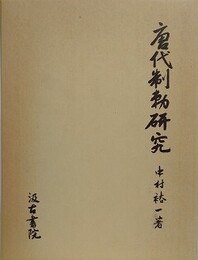 唐代制勅研究
中村裕一著
汲古書院